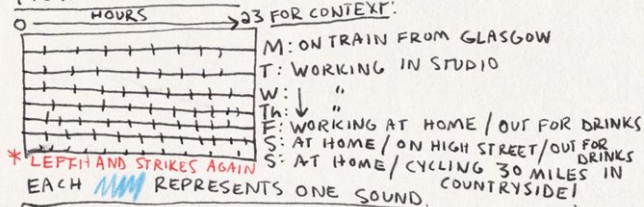 0 HOURS 23 FOR CONTEXT:
M: ON TRAIN FROM GLASGOW
T: WORKING IN STUDIO
W: ↓ "
Th: ↓ "
F: WORKING AT HOME / OUT FOR DRINKS
S: AT HOME / ON HIGH STREET / OUT FOR DRINKS
S: AT HOME / CYCLING 30 MILES IN COUNTRYSIDE!
* LEFTHAND STRIKES AGAIN
EACH REPRESENTS ONE SOUND.